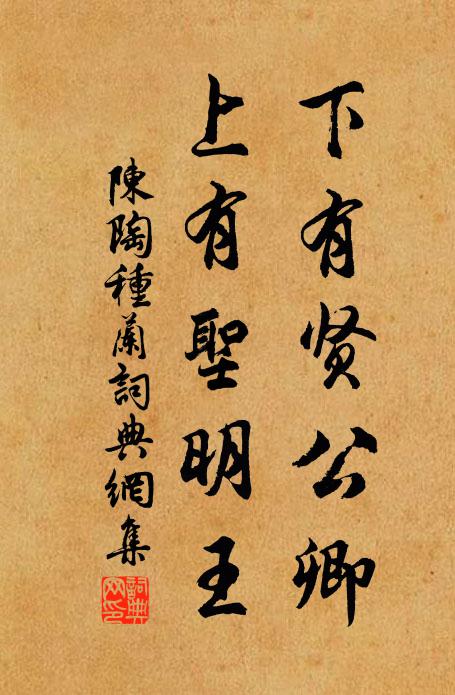 下有贤公卿
上有聖明王
陳陶種蘭詞典網集
詞典網印